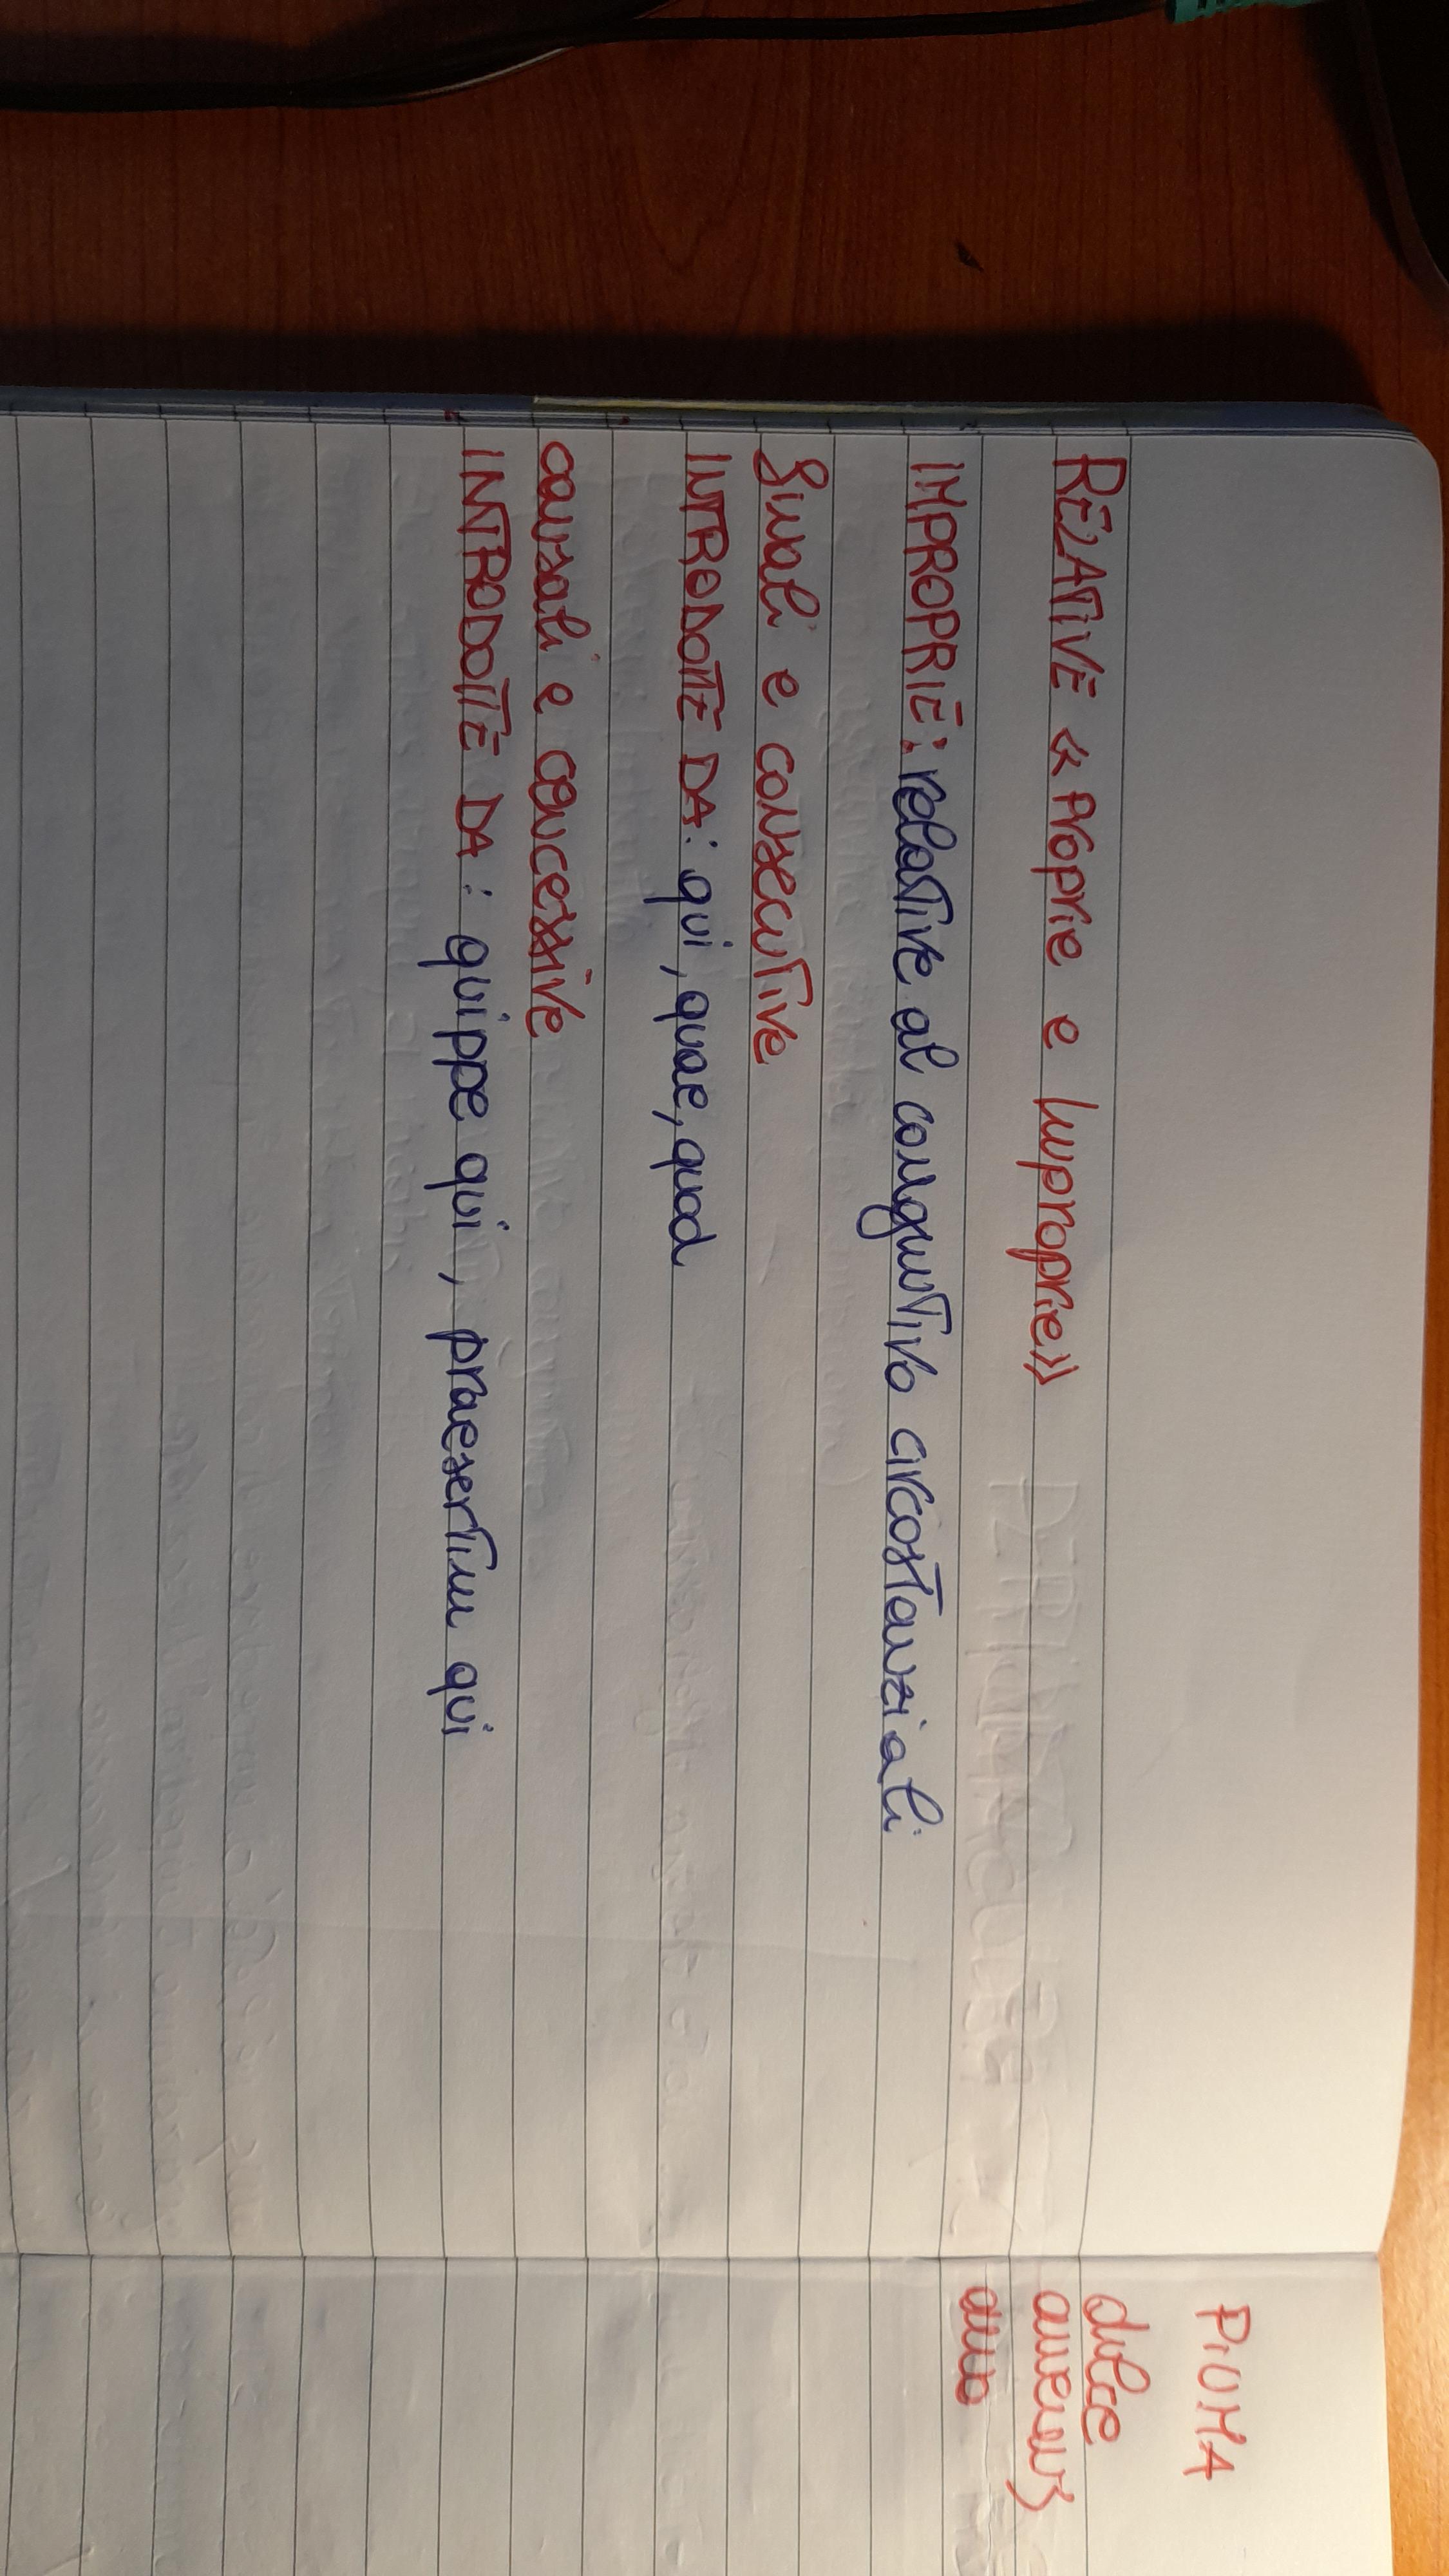 RELATIVE «proprie e improprie»
IMPROPRIE: relative al congiuntivo circostanziali
finali e consecutive
INTRODOTTE DA: qui, quae, quod
causali e concessive
INTRODOTTE DA: quippe qui, praesertim qui
PIUMA
dulce